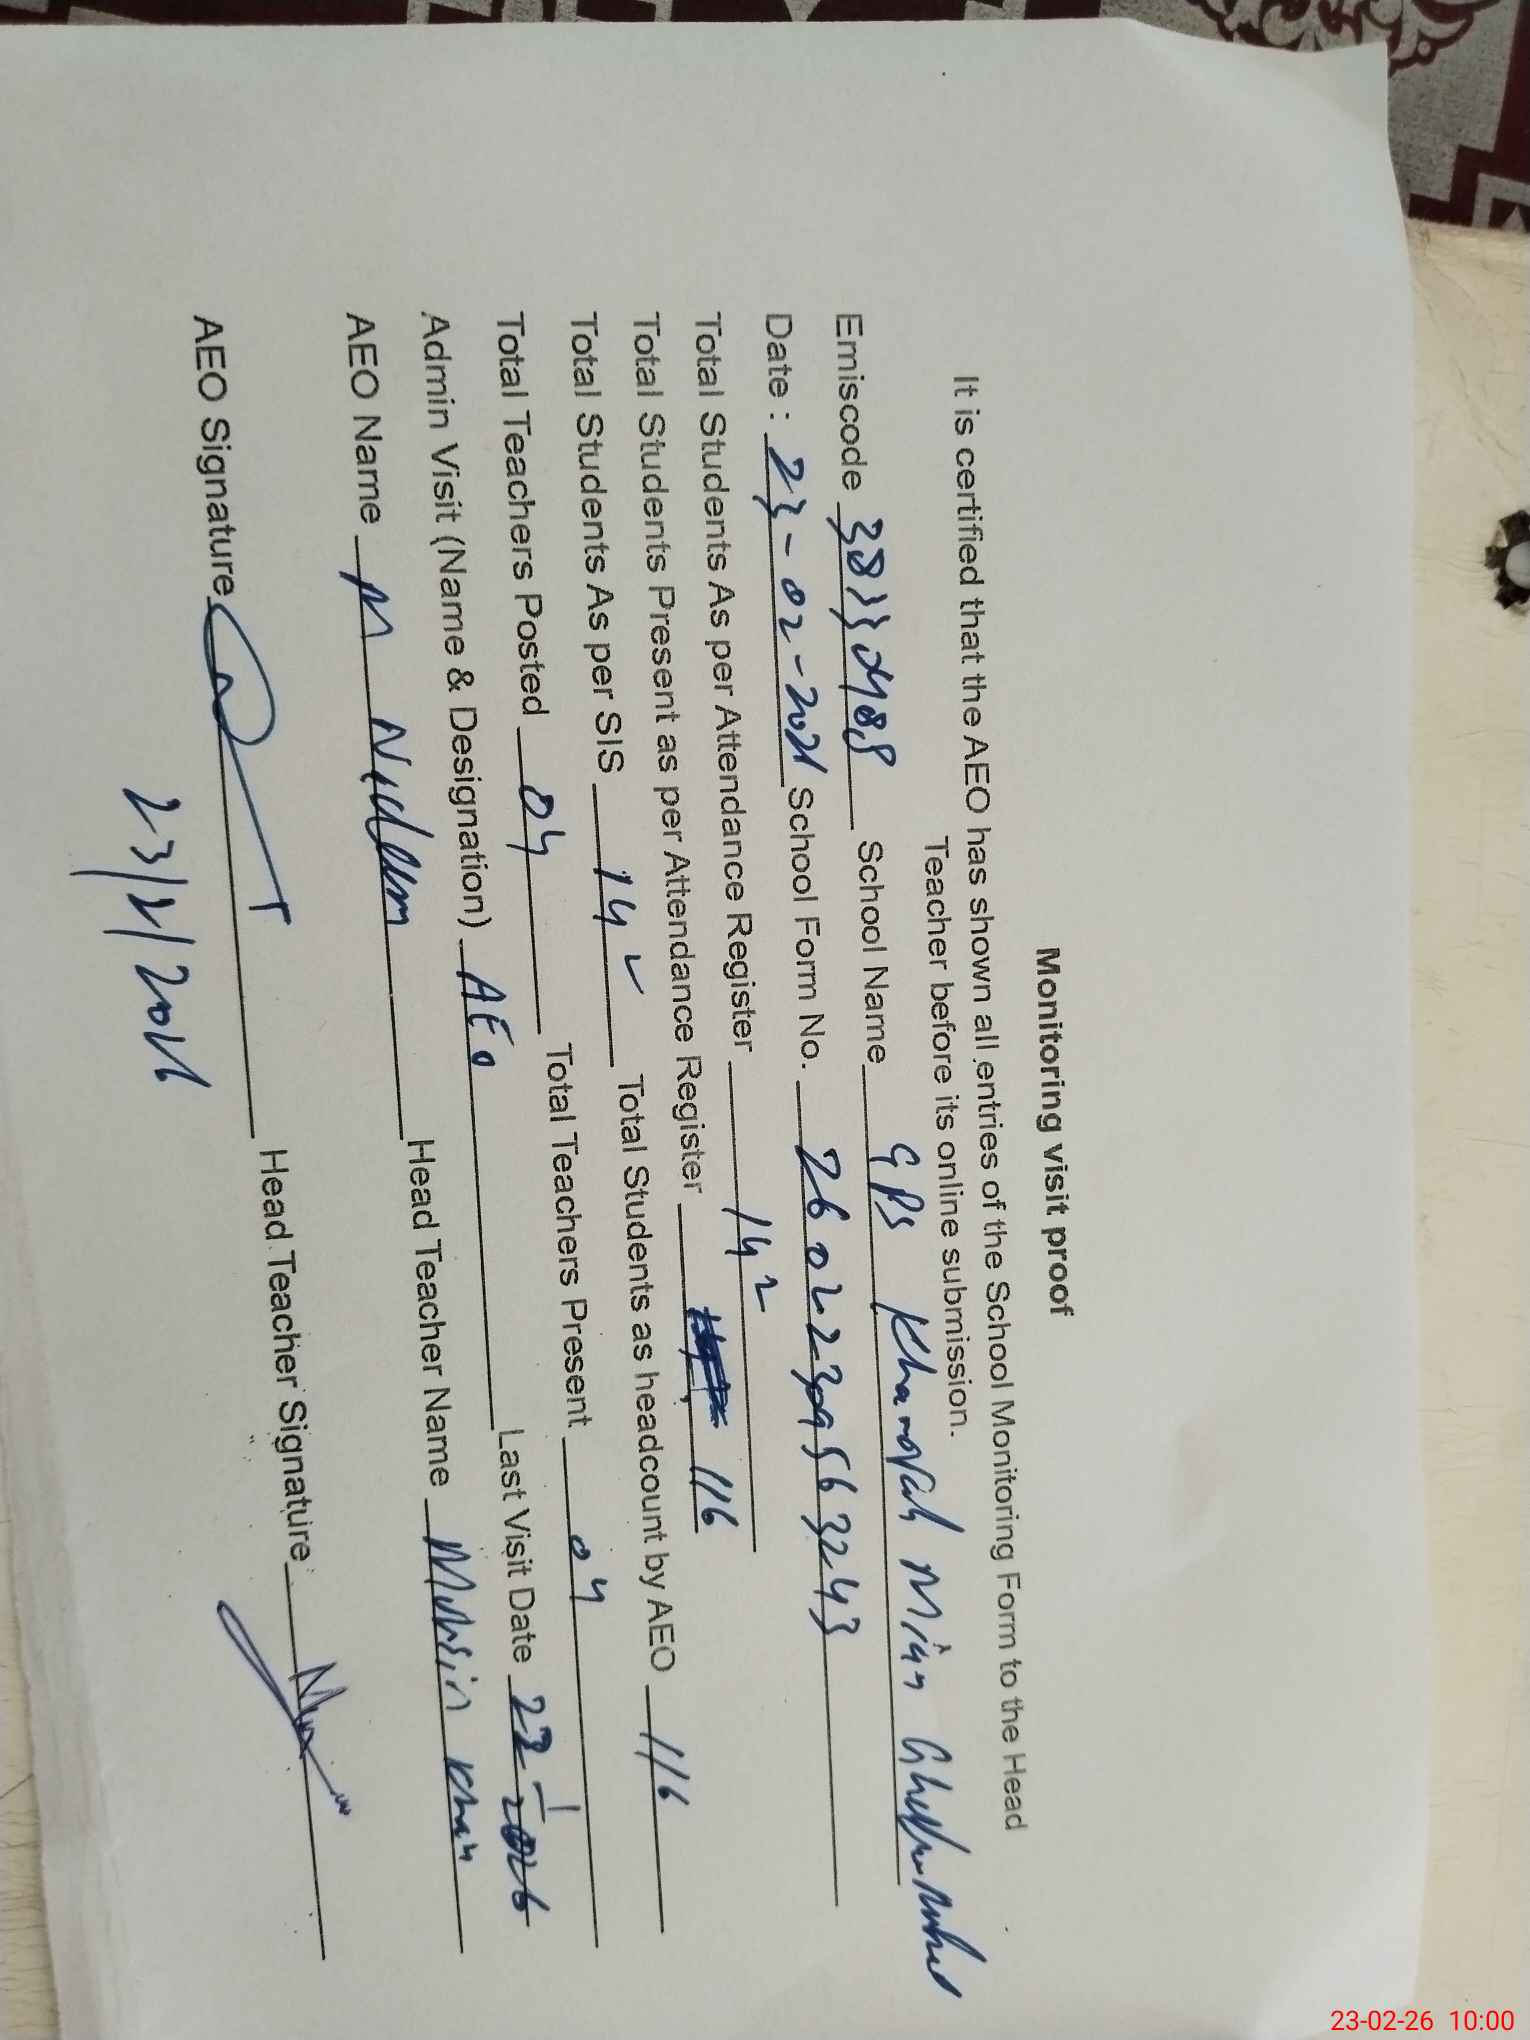 Monitoring visit proof
It is certified that the AEO has shown all entries of the School Monitoring Form to the Head
Teacher before its online submission.
Emiscode 38333488 School Name GPS Mian
Date : 23-02-2026 School Form No. 26022309563243
Total Students As per Attendance Register 142
Total Students Present as per Attendance Register 116
Total Students As per SIS 142 Total Students as headcount by AEO 116
Total Teachers Posted 04 Total Teachers Present 04
Admin Visit (Name & Designation) AEO Last Visit Date 22-1-2026
AEO Name M Nadeem Head Teacher Name Mohsin Khan
AEO Signature Head Teacher Signature
23/2/2026
23-02-26 10:00